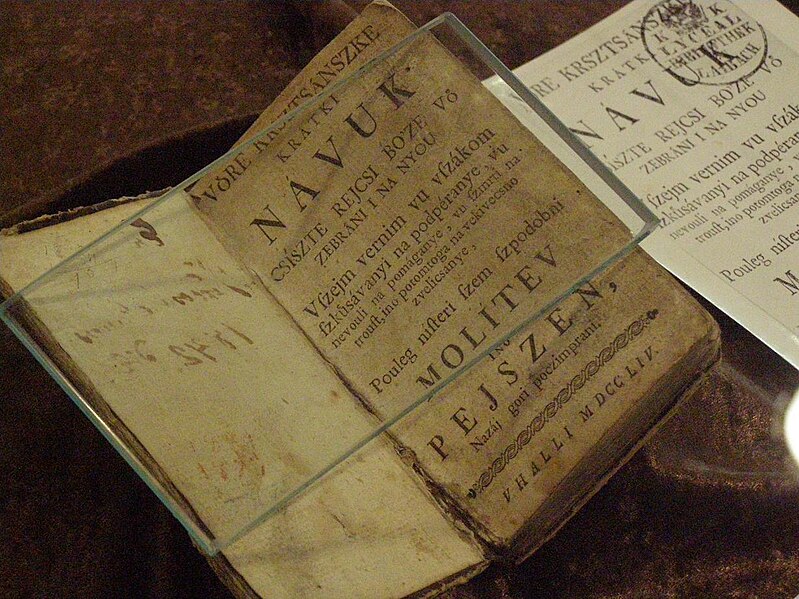 VÖRE KRSZTSANSZKE
KRATKI
NÁVUK
CSISZTE REJCSI BO'ZE VÖ
ZEBRÁNI I NA NYOU
Vſzejm vernim vu vſzákom
ſzkũsávanyi na podpéranye, v'u
nevouli na pomáganye, vu ſzmrti na-
trouſt, ino potomtoga na vekivecsno
zvelicsánye,
Pouleg niſteri ſzem ſzpodobni
MOLÍTEV
INO
PEJSZEN,
Nazáj gori poezimprani.
VHALLI MDCCLIV.
VÖRE KRSZTSÁNSZKE
KRATKI
NÁVUK
CSISZTE REJCSI BO'ZE VÖ
ZEBRÁNI I NA NYOU
ſzejm vernim vu vſzák
ſzkũsávanyi na podpéra
nevouli na pomáganye, v
trouſt, ino potomtoga na
zvelicsán
Pouleg niſteri ſzem
M
K K
LYCEAL
BIBLIOTHEK
LAIBACH